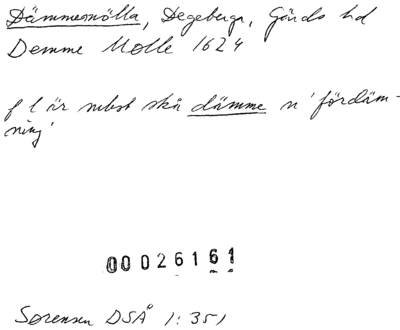 Dämmesmölla, Degeberga, Gärds hd
Demme Mølle 1624
f l är subst skå dämme n 'fördäm-
ning'
00026161
Sørensen DSÅ 1:351